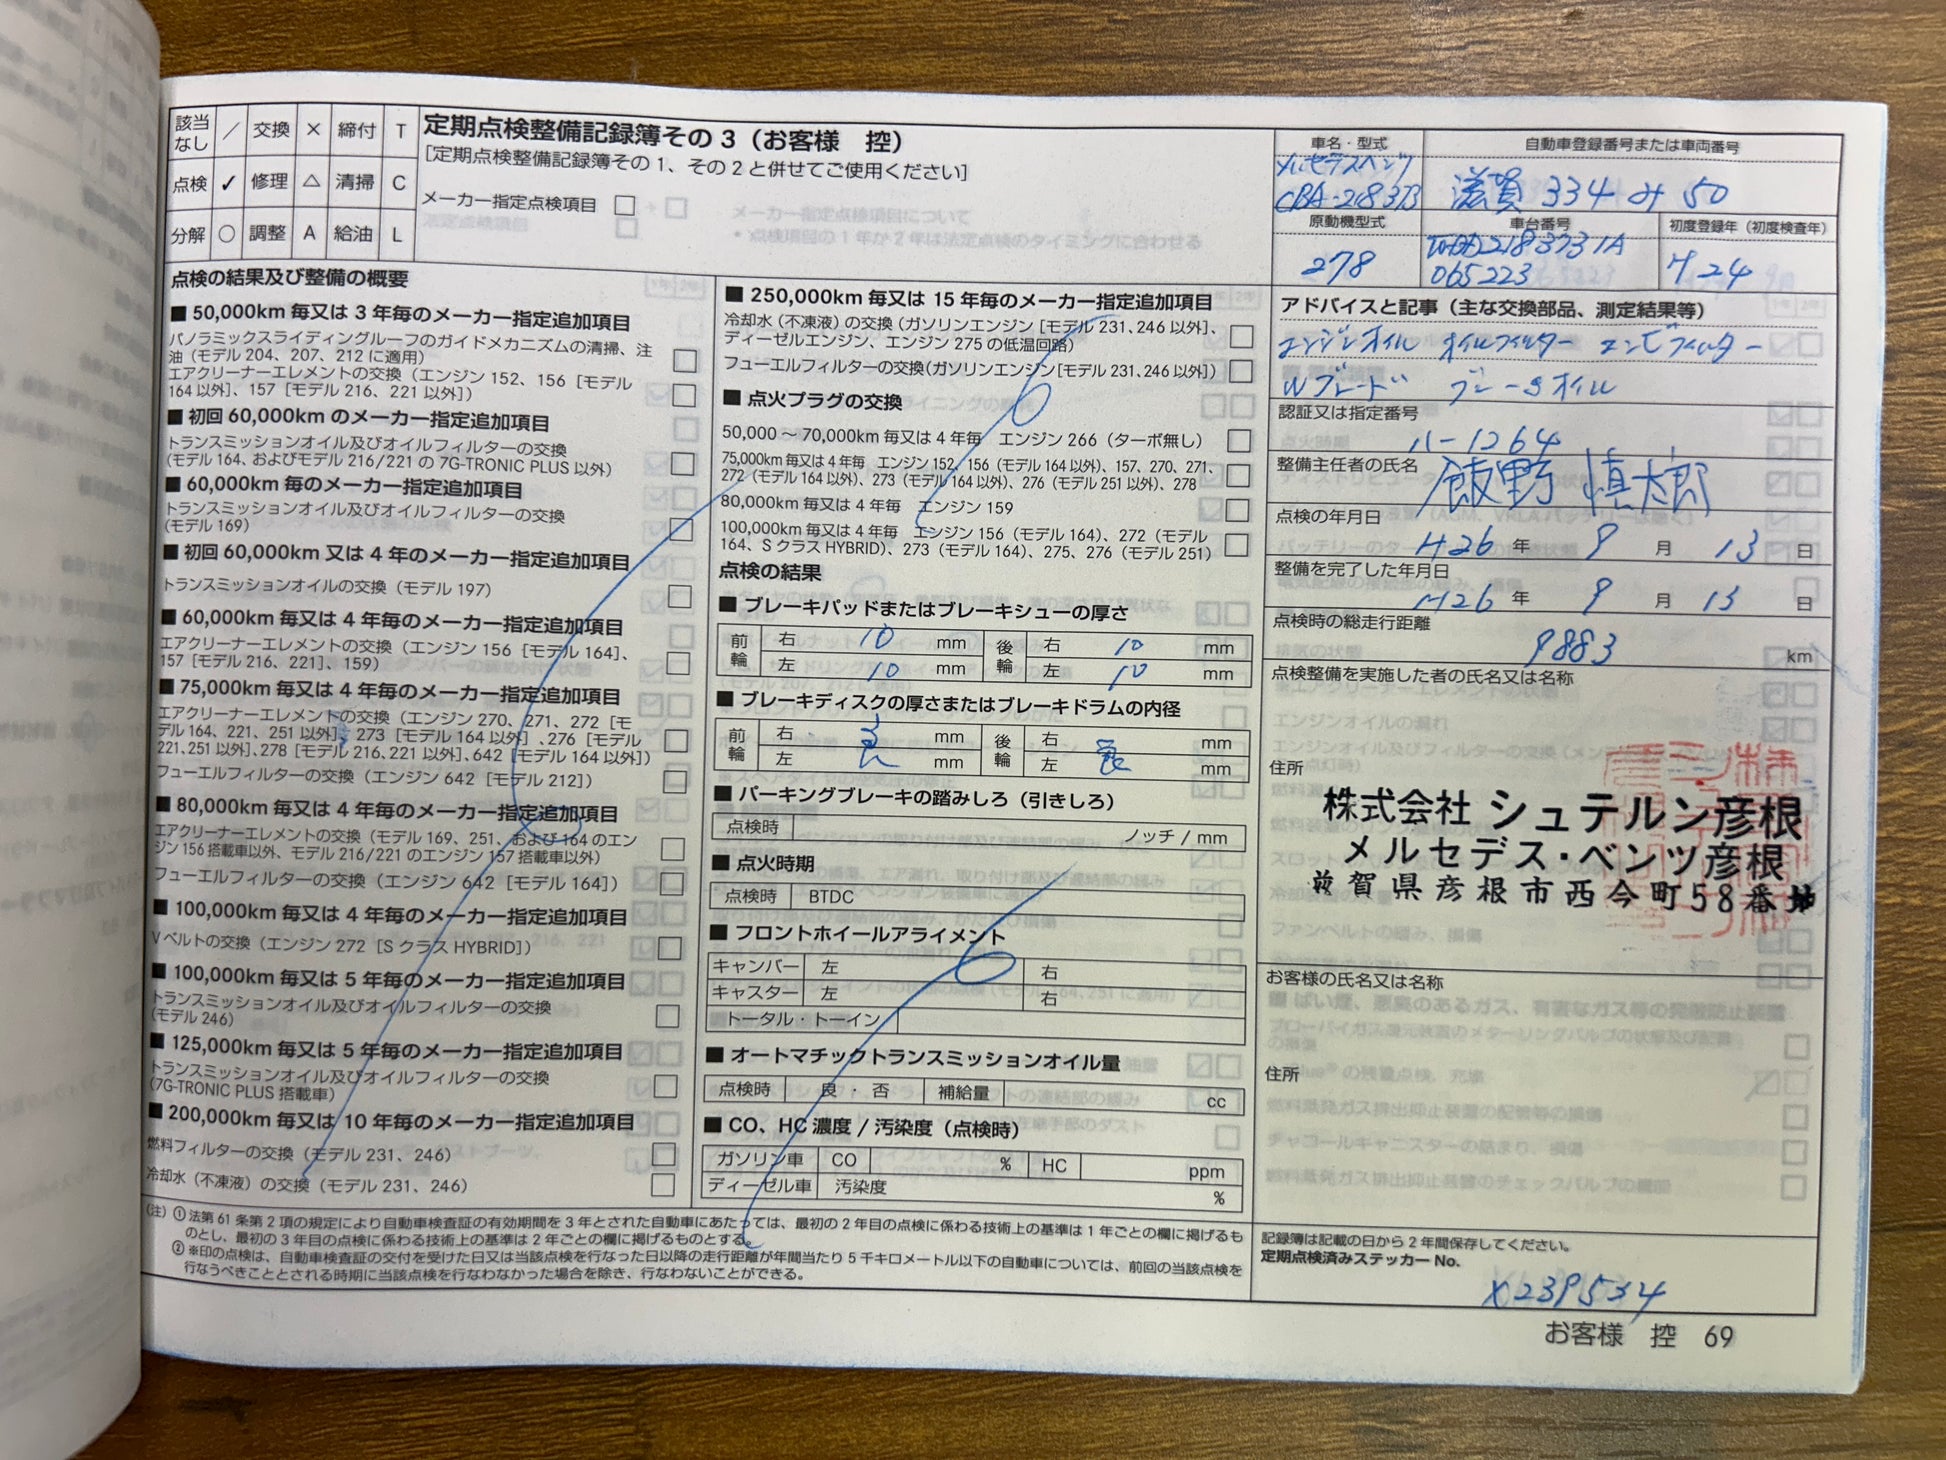 該当なし ／ 交換 × 締付 T
点検 ✓ 修理 △ 清掃 C
分解 ○ 調整 A 給油 L
定期点検整備記録簿その３（お客様　控）
［定期点検整備記録簿その１、その２と併せてご使用ください］
メーカー指定点検項目 □
車名・型式
メルセデスベンツ
CBA-218373
自動車登録番号または車両番号
滋賀 334 み 50
原動機型式
278
車台番号
WDD2183731A
065223
初度登録年（初度検査年）
H24
点検の結果及び整備の概要
■ 50,000km 毎又は 3 年毎のメーカー指定追加項目
パノラミックスライディングルーフのガイドメカニズムの清掃、注
油（モデル 204、207、212 に適用）
エアクリーナーエレメントの交換（エンジン 152、156［モデル
164 以外］、157［モデル 216、221 以外］）
■ 初回 60,000km のメーカー指定追加項目
トランスミッションオイル及びオイルフィルターの交換
（モデル 164、およびモデル 216/221 の 7G-TRONIC PLUS 以外）
■ 60,000km 毎のメーカー指定追加項目
トランスミッションオイル及びオイルフィルターの交換
（モデル 169）
■ 初回 60,000km 又は 4 年のメーカー指定追加項目
トランスミッションオイルの交換（モデル 197）
■ 60,000km 毎又は 4 年毎のメーカー指定追加項目
エアクリーナーエレメントの交換（エンジン 156［モデル 164］、
157［モデル 216、221］、159）
■ 75,000km 毎又は 4 年毎のメーカー指定追加項目
エアクリーナーエレメントの交換（エンジン 270、271、272［モ
デル 164、221、251 以外］、273［モデル 164 以外］、276［モデル
221、251 以外］、278［モデル 216、221 以外］、642［モデル 164 以外］）
フューエルフィルターの交換（エンジン 642［モデル 212］）
■ 80,000km 毎又は 4 年毎のメーカー指定追加項目
エアクリーナーエレメントの交換（モデル 169、251、および 164 のエン
ジン 156 搭載車以外、モデル 216/221 のエンジン 157 搭載車以外）
フューエルフィルターの交換（エンジン 642［モデル 164］）
■ 100,000km 毎又は 4 年毎のメーカー指定追加項目
V ベルトの交換（エンジン 272［S クラス HYBRID］）
■ 100,000km 毎又は 5 年毎のメーカー指定追加項目
トランスミッションオイル及びオイルフィルターの交換
（モデル 246）
■ 125,000km 毎又は 5 年毎のメーカー指定追加項目
トランスミッションオイル及びオイルフィルターの交換
（7G-TRONIC PLUS 搭載車）
■ 200,000km 毎又は 10 年毎のメーカー指定追加項目
燃料フィルターの交換（モデル 231、246）
冷却水（不凍液）の交換（モデル 231、246）
■ 250,000km 毎又は 15 年毎のメーカー指定追加項目
冷却水（不凍液）の交換（ガソリンエンジン［モデル 231、246 以外］、
ディーゼルエンジン、エンジン 275 の低温回路）
フューエルフィルターの交換（ガソリンエンジン［モデル 231、246 以外］）
■ 点火プラグの交換
50,000 ～ 70,000km 毎又は 4 年毎　エンジン 266（ターボ無し）
75,000km 毎又は 4 年毎　エンジン 152、156（モデル 164 以外）、157、270、271、
272（モデル 164 以外）、273（モデル 164 以外）、276（モデル 251 以外）、278
80,000km 毎又は 4 年毎　エンジン 159
100,000km 毎又は 4 年毎　エンジン 156（モデル 164）、272（モデル
164、S クラス HYBRID）、273（モデル 164）、275、276（モデル 251）
点検の結果
■ ブレーキパッドまたはブレーキシューの厚さ
前輪 右 10 mm 後輪 右 10 mm
左 10 mm 左 10 mm
■ ブレーキディスクの厚さまたはブレーキドラムの内径
前輪 右 良 mm 後輪 右 良 mm
左 mm 左 mm
■ パーキングブレーキの踏みしろ（引きしろ）
点検時 ノッチ / mm
■ 点火時期
点検時 BTDC
■ フロントホイールアライメント
キャンバー 左 右
キャスター 左 右
トータル・トーイン
■ オートマチックトランスミッションオイル量
点検時 良・否 補給量 cc
■ CO、HC 濃度 / 汚染度（点検時）
ガソリン車 CO % HC ppm
ディーゼル車 汚染度 %
アドバイスと記事（主な交換部品、測定結果等）
エンジンオイル オイルフィルター エンピフィルター
Wブレード ブレーキオイル
認証又は指定番号
ハ-1264
整備主任者の氏名
飯野 慎太郎
点検の年月日
H26 年 9 月 13 日
整備を完了した年月日
H26 年 9 月 13 日
点検時の総走行距離
9883 km
点検整備を実施した者の氏名又は名称
住所
株式会社 シュテルン彦根
メルセデス・ベンツ彦根
滋賀県彦根市西今町58番地
お客様の氏名又は名称
住所
（注）① 法第 61 条第 2 項の規定により自動車検査証の有効期間を 3 年とされた自動車にあたっては、最初の 2 年目の点検に係わる技術上の基準は 1 年ごとの欄に掲げるも
のとし、最初の 3 年目の点検に係わる技術上の基準は 2 年ごとの欄に掲げるものとする。
② ※印の点検は、自動車検査証の交付を受けた日又は当該点検を行なった日以降の走行距離が年間当たり 5 千キロメートル以下の自動車については、前回の当該点検を
行なうべきこととされる時期に当該点検を行なわなかった場合を除き、行なわないことができる。
記録簿は記載の日から 2 年間保存してください。
定期点検済みステッカー No.
X239534
お客様　控　69